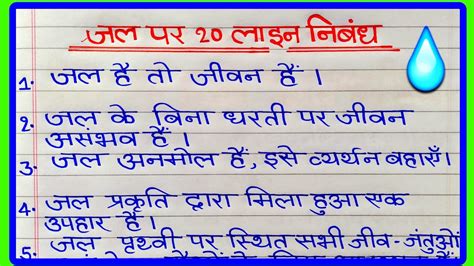 जल पर 20 लाइन निबंध
1. जल हैं तो जीवन हैं ।
2. जल के बिना धरती पर जीवन
असंभव हैं ।
3. जल अनमोल हैं, इसे व्यर्थ न बहाएँ।
4. जल प्रकृति द्वारा मिला हुआ एक
उपहार हैं ।
5. जल पृथ्वी पर स्थित सभी जीव-जंतुओं